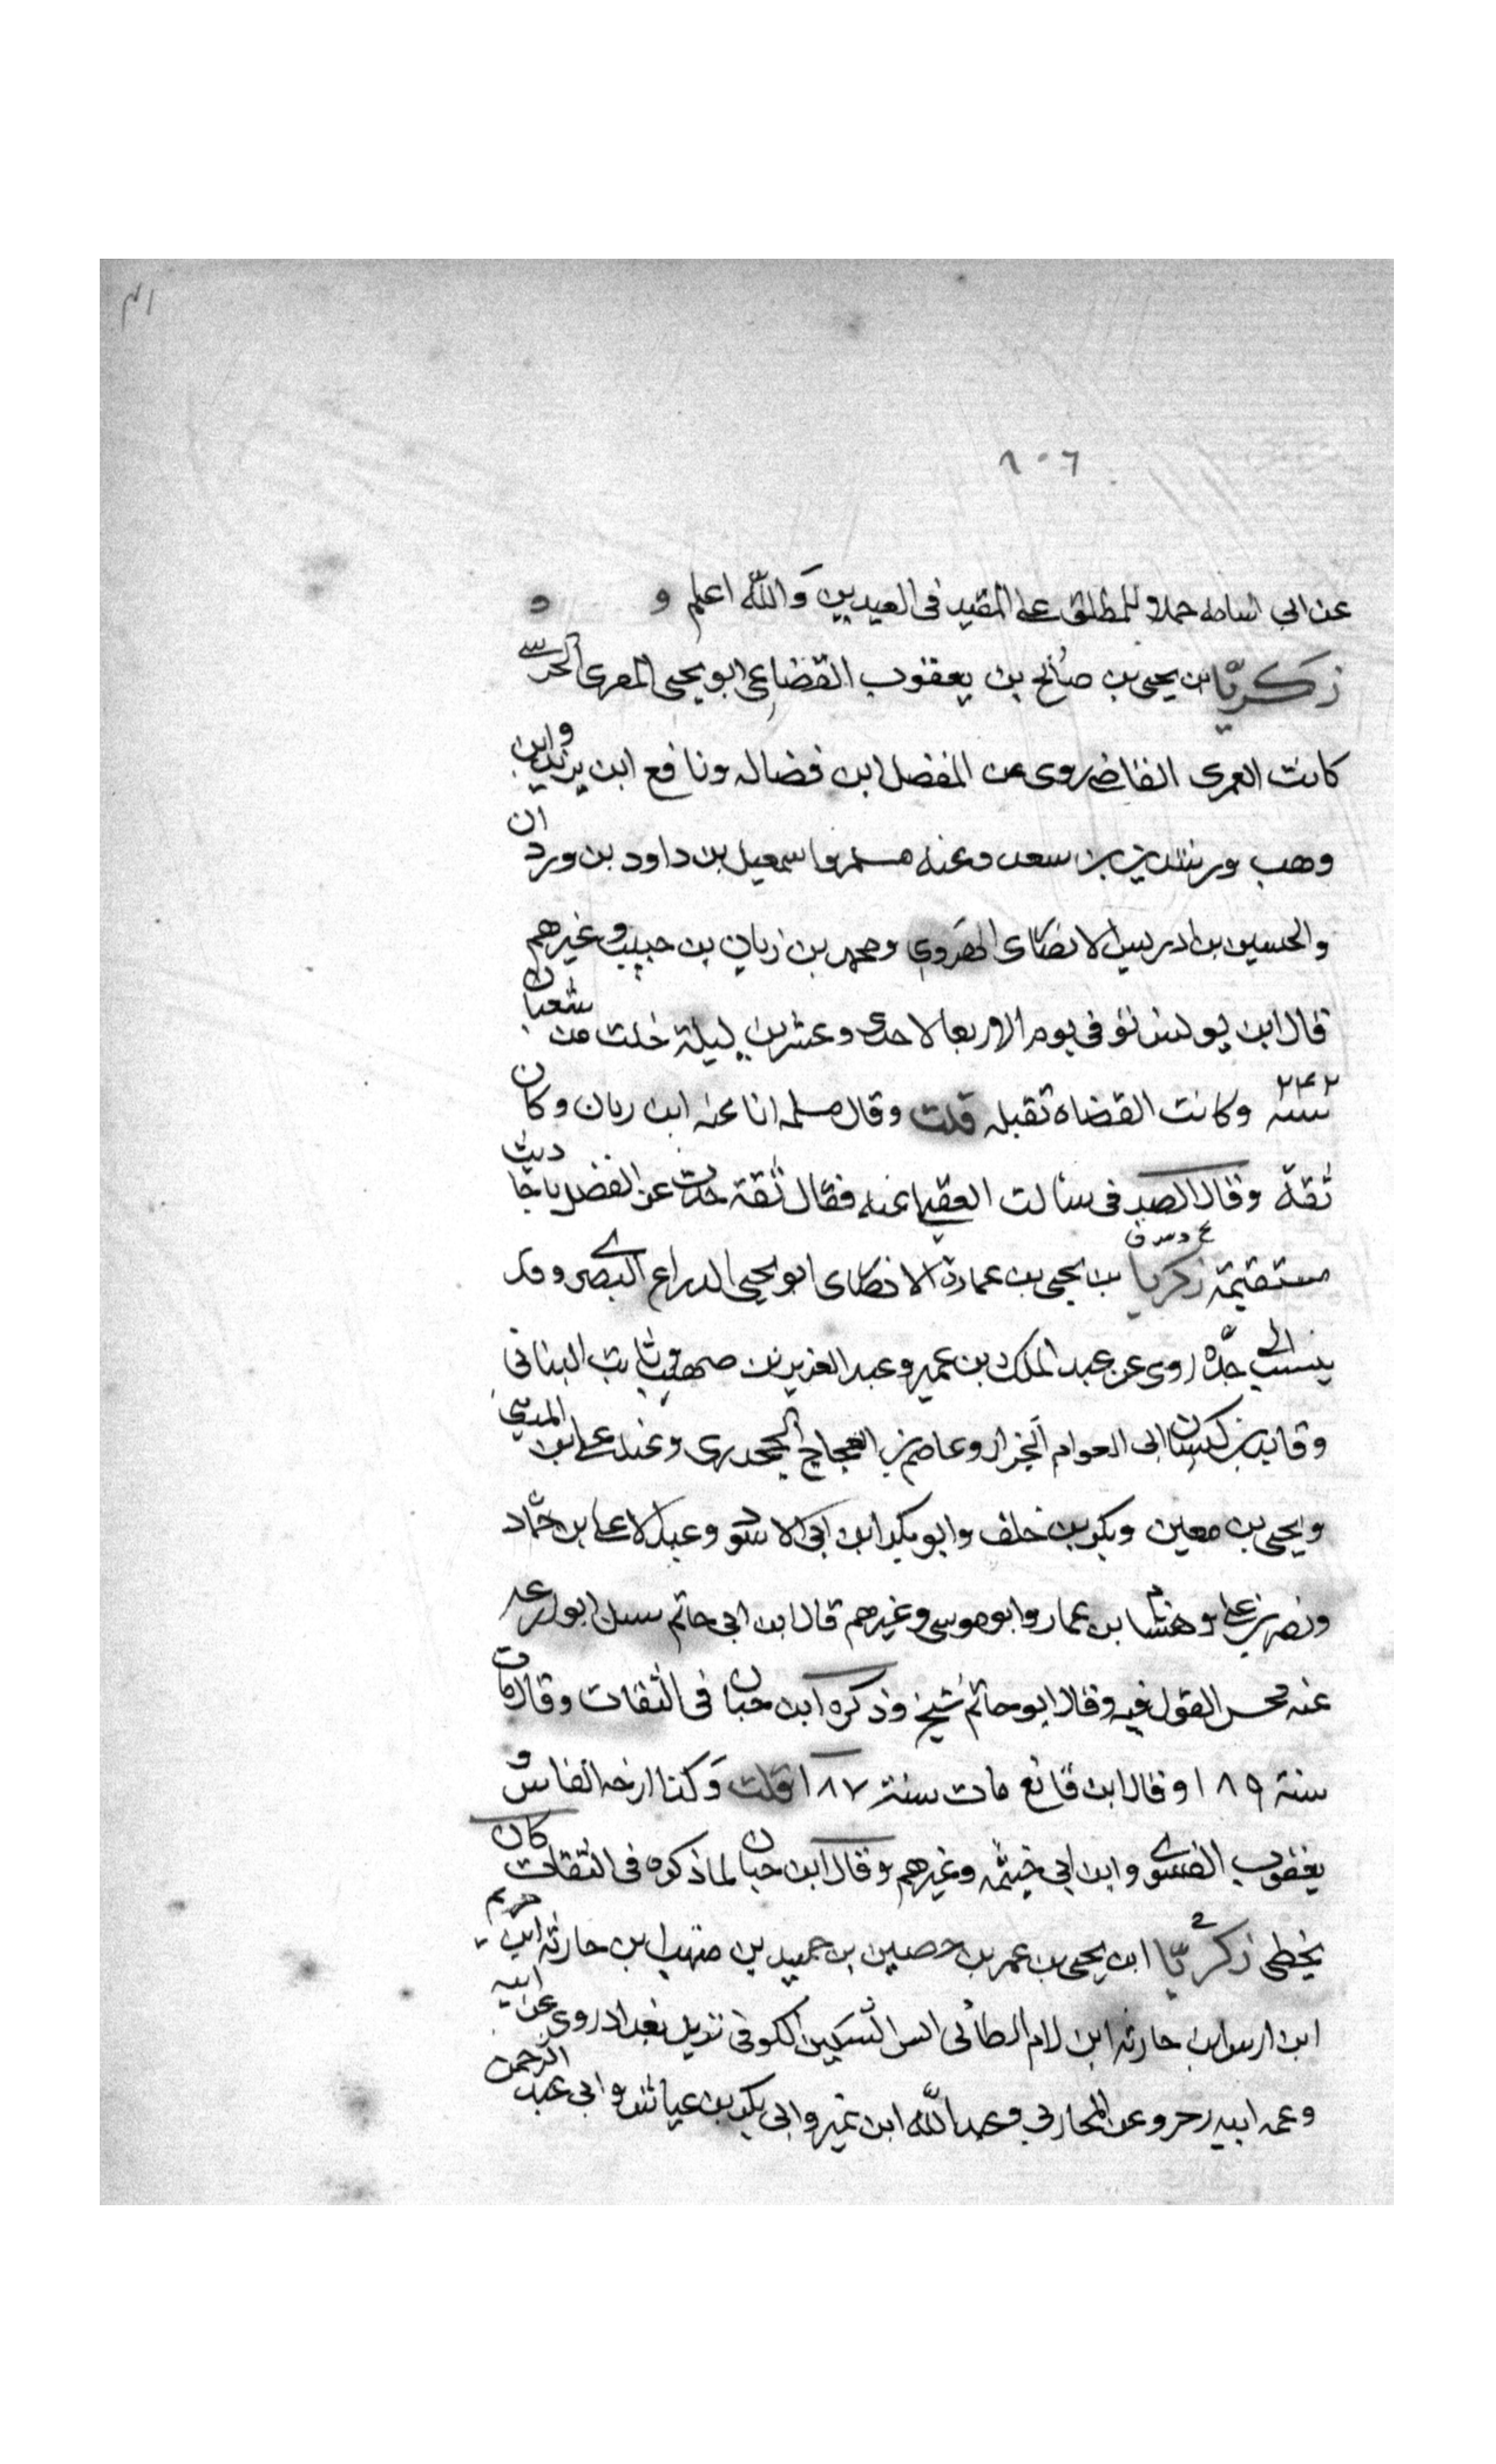 ٣١
١٠٦
عن ابي اسامه حملا للمطلق على المقيد فى العيديين والله اعلم و و
زكريّا بن يحيى بن صالح بن يعقوب القضاعى ابو يحيى المصرى الحرسى
كاتب العمرى القاضى روى عن المفضل ابن فضاله ونافع ابن يزيد وابن
وهب ورشدين بن سعد وعنه مسلم واسمعيل بن داود بن وردان
والحسين بن ادريس الانصارى الهروي ومحمد بن زبان بن حبيب وغيرهم
قال ابن يونس توفى يوم الاربعا لاحدى وعشرين ليلة خلت من شعبان
سنة ٢٤٢ وكانت القضاة تقبله قلت وقال مسلمه انا عنه ابن ريان وكان
ثقة وقال الصيد فى سألت العقيلى عنه فقال ثقة حدث عن المفضل باحاديث
مستقيمة زكريا بن يحيى بن عمارة الانصارى ابو يحيى الدراع البصرى وقد
ينسب الى جدّه روى عن عبد الملك بن عمير وعبد العزيز بن صهيب وثابت البنانى
وقايد بن كيسان ابى العوام الجزار وعاصم بن العجاج الجحدرى وعنه على ابن المدينى
ويحيى بن معين وبكر بن خلف وابو بكر ابن ابى الاسود وعبد الاعلى بن حمّاد
ونصر بن على وهشام بن عمار وابو موسى وغيرهم قال ابن ابى حاتم سىل ابو زرعه
عنه فحسن القول فيه وقال ابو حاتم شيخ وذكره ابن حبان فى الثقات وقال مات
سنة ١٨٩ وقال ابن قانع مات سنة ١٨٧ قلت وكذا ارخه الفلاس و
يعقوب الفسوى وابن ابى خيثمه وغيرهم وقال ابن حبان لما ذكره فى الثقات كان
يخطى زكريّا ابن يحيى بن عمر بن حصين بن حميد بن منهب ابن حارثه ابن خريم
ابن اوس ابن حارثه ابن لام الطائى ابو السكين الكوفى نزيل بغداد روى عن ابيه
وعم ابيه زحر وعن المحاربي وعبد الله ابن نمير وابى بكر بن عياش وابى عبد الرحمن